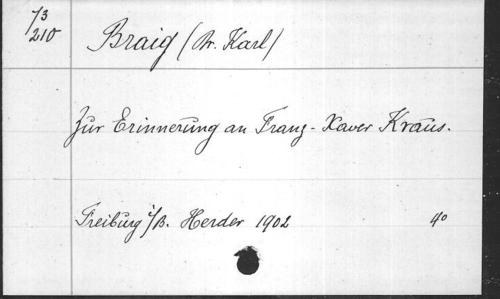 73
210
Braig (Dr. Karl)
Zur Erinnerung an Franz-Xaver Kraus.
Freiburg i/B. Herder 1902 4°